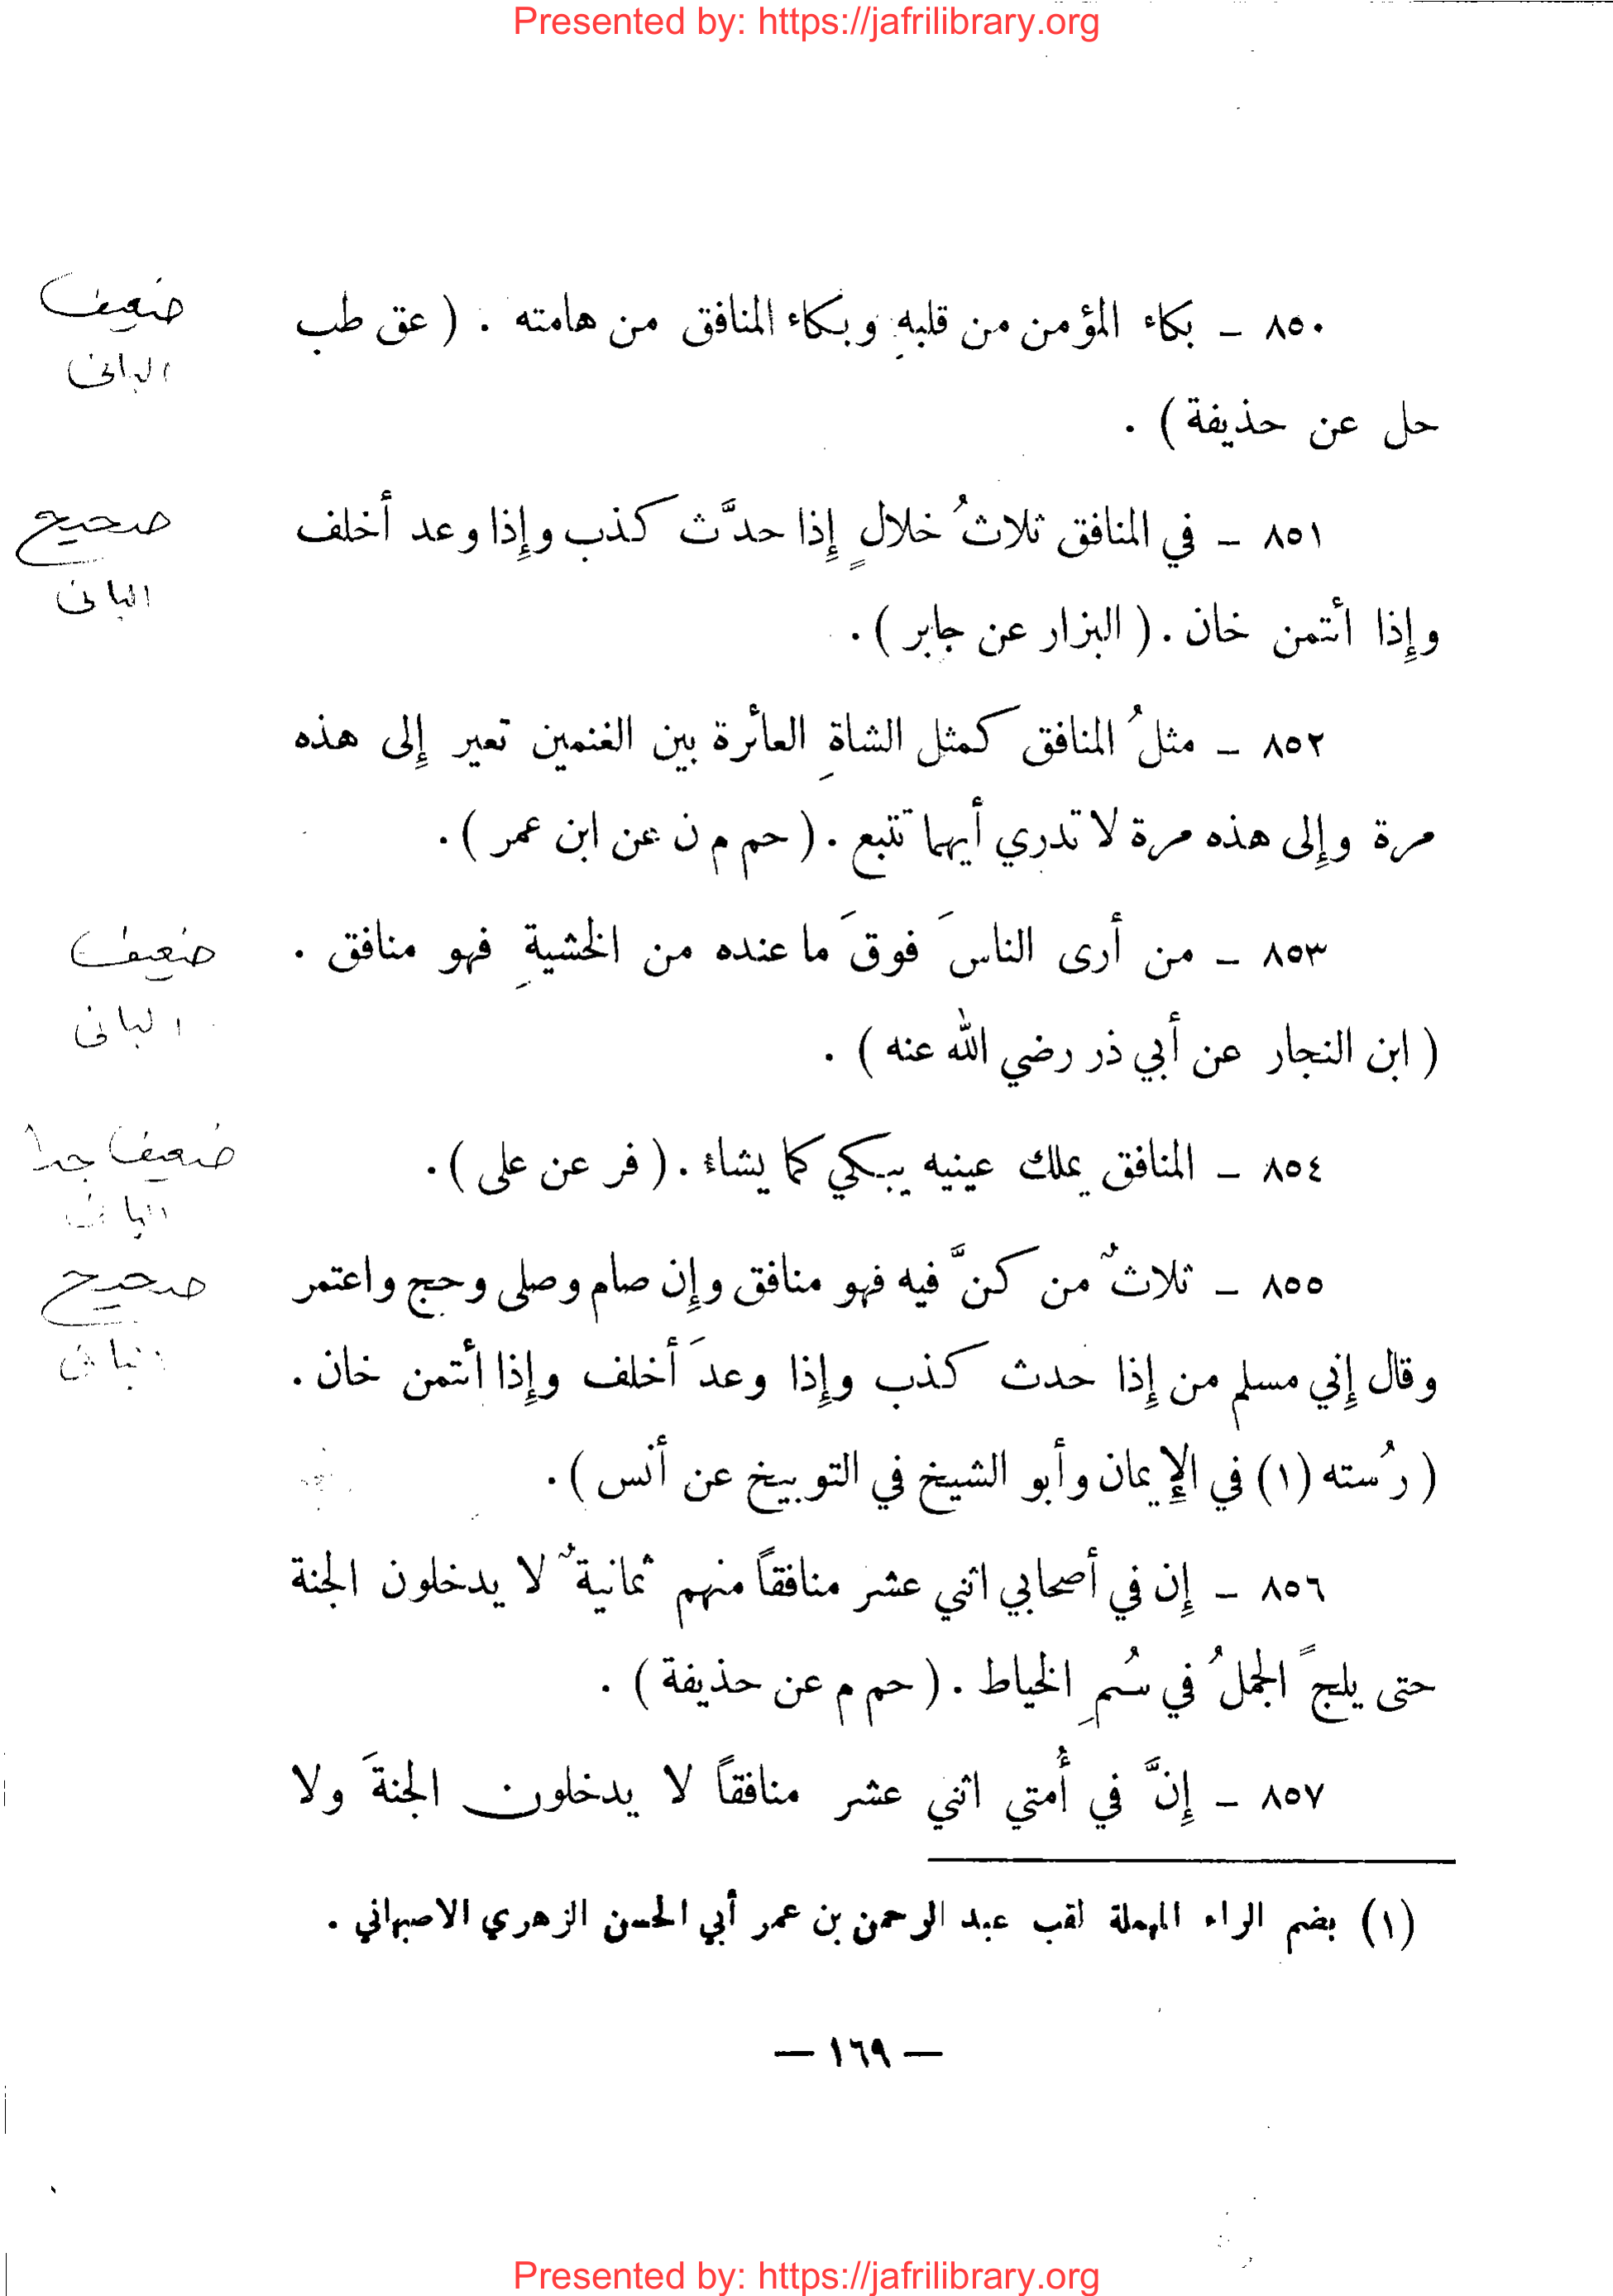 Presented by: https://jafrilibrary.org
٨٥٠ – بكاء المؤمن من قلبهِ وبكاء المنافق من هامته . ( عق طب
ضعيف
البانی
حل عن حذيفة ) .
٨٥١ – في المنافق ثلاثُ خلالٍ إِذا حدَّث كذب وإِذا وعد أخلف
صحيح
البانی
وإِذا أئتمن خان . ( البزار عن جابر ) .
٨٥٢ – مثلُ المنافق كمثل الشاةِ العائرة بين الغنمين تعير إِلى هذه
مرة وإِلى هذه مرة لا تدري أيهما تتبع . ( حم م ن عن ابن عمر ) .
٨٥٣ – من أرى الناسَ فوقَ ما عنده من الخشيةِ فهو منافق .
ضعيف
البانی
( ابن النجار عن أبي ذر رضي الله عنه ) .
٨٥٤ – المنافق يملك عينيه يبكي كما يشاء . ( فر عن على ) .
ضعيف جدا
البانی
٨٥٥ – ثلاثٌ من كنَّ فيه فهو منافق وإِن صام وصلى وحج واعتمر
صحيح
البانی
وقال إِني مسلم من إِذا حدث كذب وإِذا وعدَ أخلف وإِذا أئتمن خان .
( رُسته (١) في الإِيمان وأبو الشيخ في التوبيخ عن أنس ) .
٨٥٦ – إِن في أصحابي اثني عشر منافقاً منهم ثمانيةٌ لا يدخلون الجنة
حتى يلجَ الجملُ في سُمِ الخياط . ( حم م عن حذيفة ) .
٨٥٧ – إِنَّ في أُمتي اثني عشر منافقاً لا يدخلون الجنةَ ولا
(١) بضم الراء المهملة لقب عبد الرحمن بن عمر أبي الحسن الزهري الاصبهاني .
— ١٦٩ —
Presented by: https://jafrilibrary.org